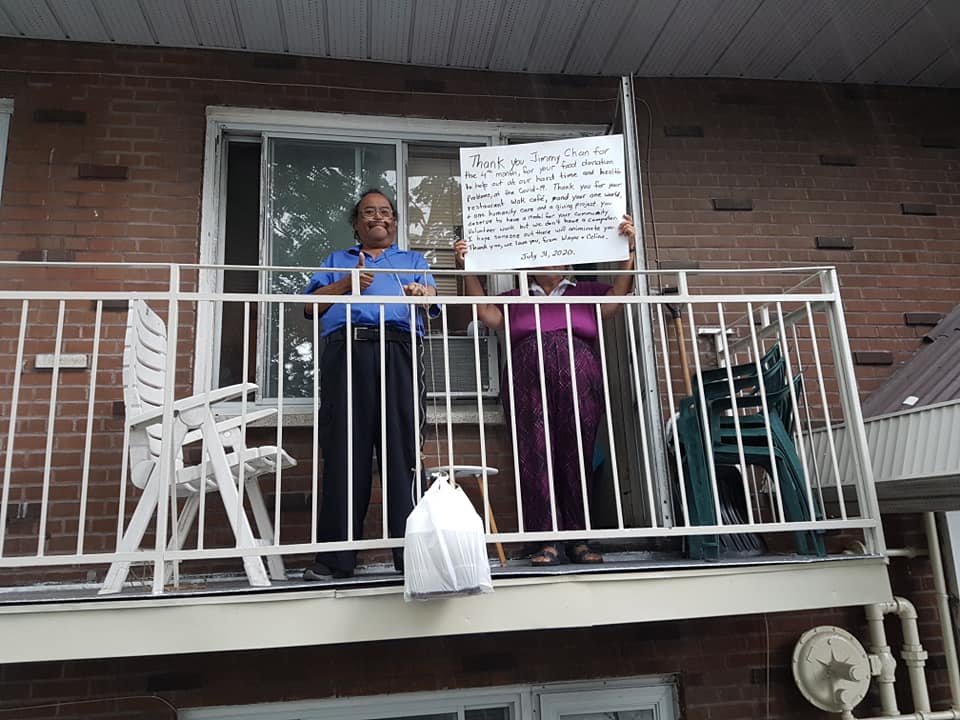 Thank you Jimmy Chan for
the 4th month, for your food donation
to help out at our hard time and health
problems, at the Covid-19. Thank you for your
restaurant Wok café, and your one world,
+ one humanity care and a giving project. you
deserve to have a medal for your community
Volunteer work but we don't have a computer
I hope someone out there will nominate you.
Thank you, we love you, from Wayne + Celine.
July 31, 2020.